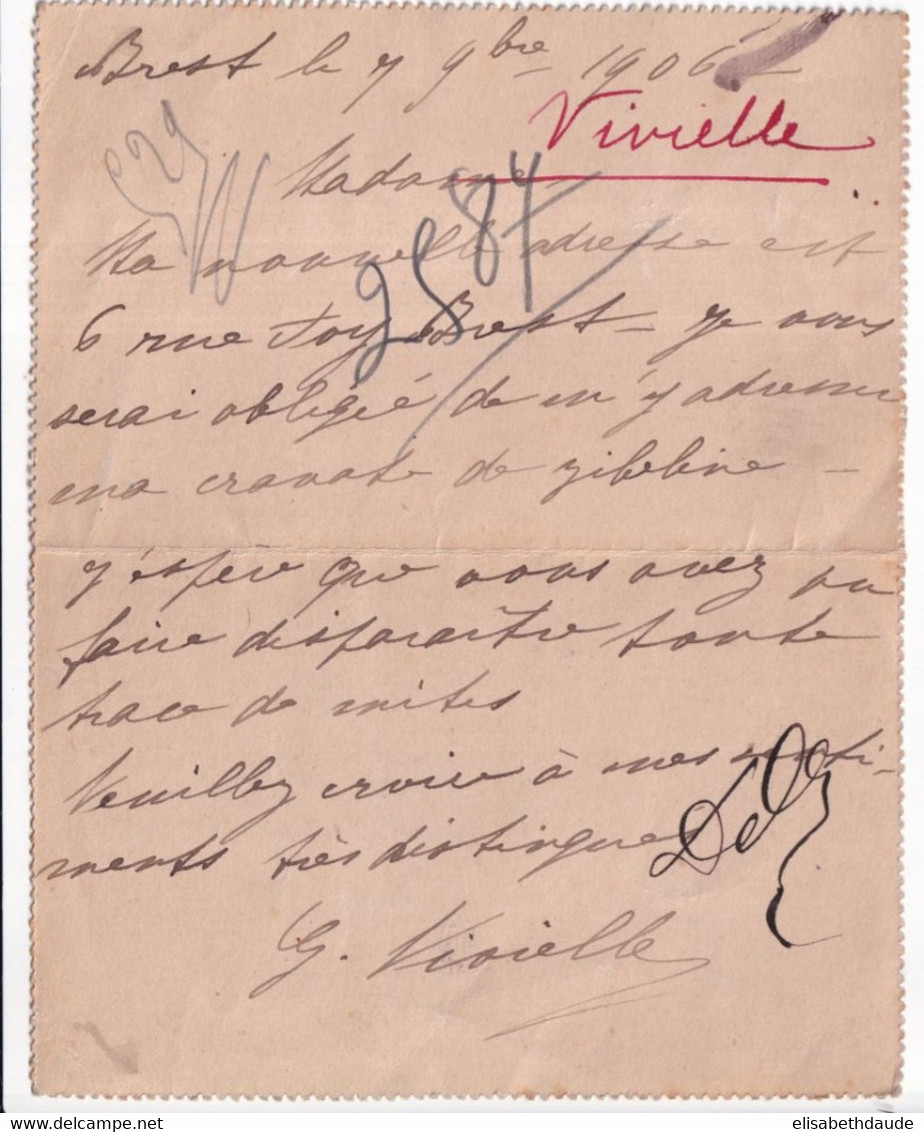 Brest le 7 9bre 1906
Vivielle
Madame
Ma nouvelle adresse est
2584
6 rue Foy Brest – je vous
serai obligé de m'y adresser
ma cravate de zibeline –
J'espère que vous avez pu
faire disparaître toute
trace de mites
Veuillez croire à mes senti-
ments très distingués
G. Vivielle
elisabethdaude